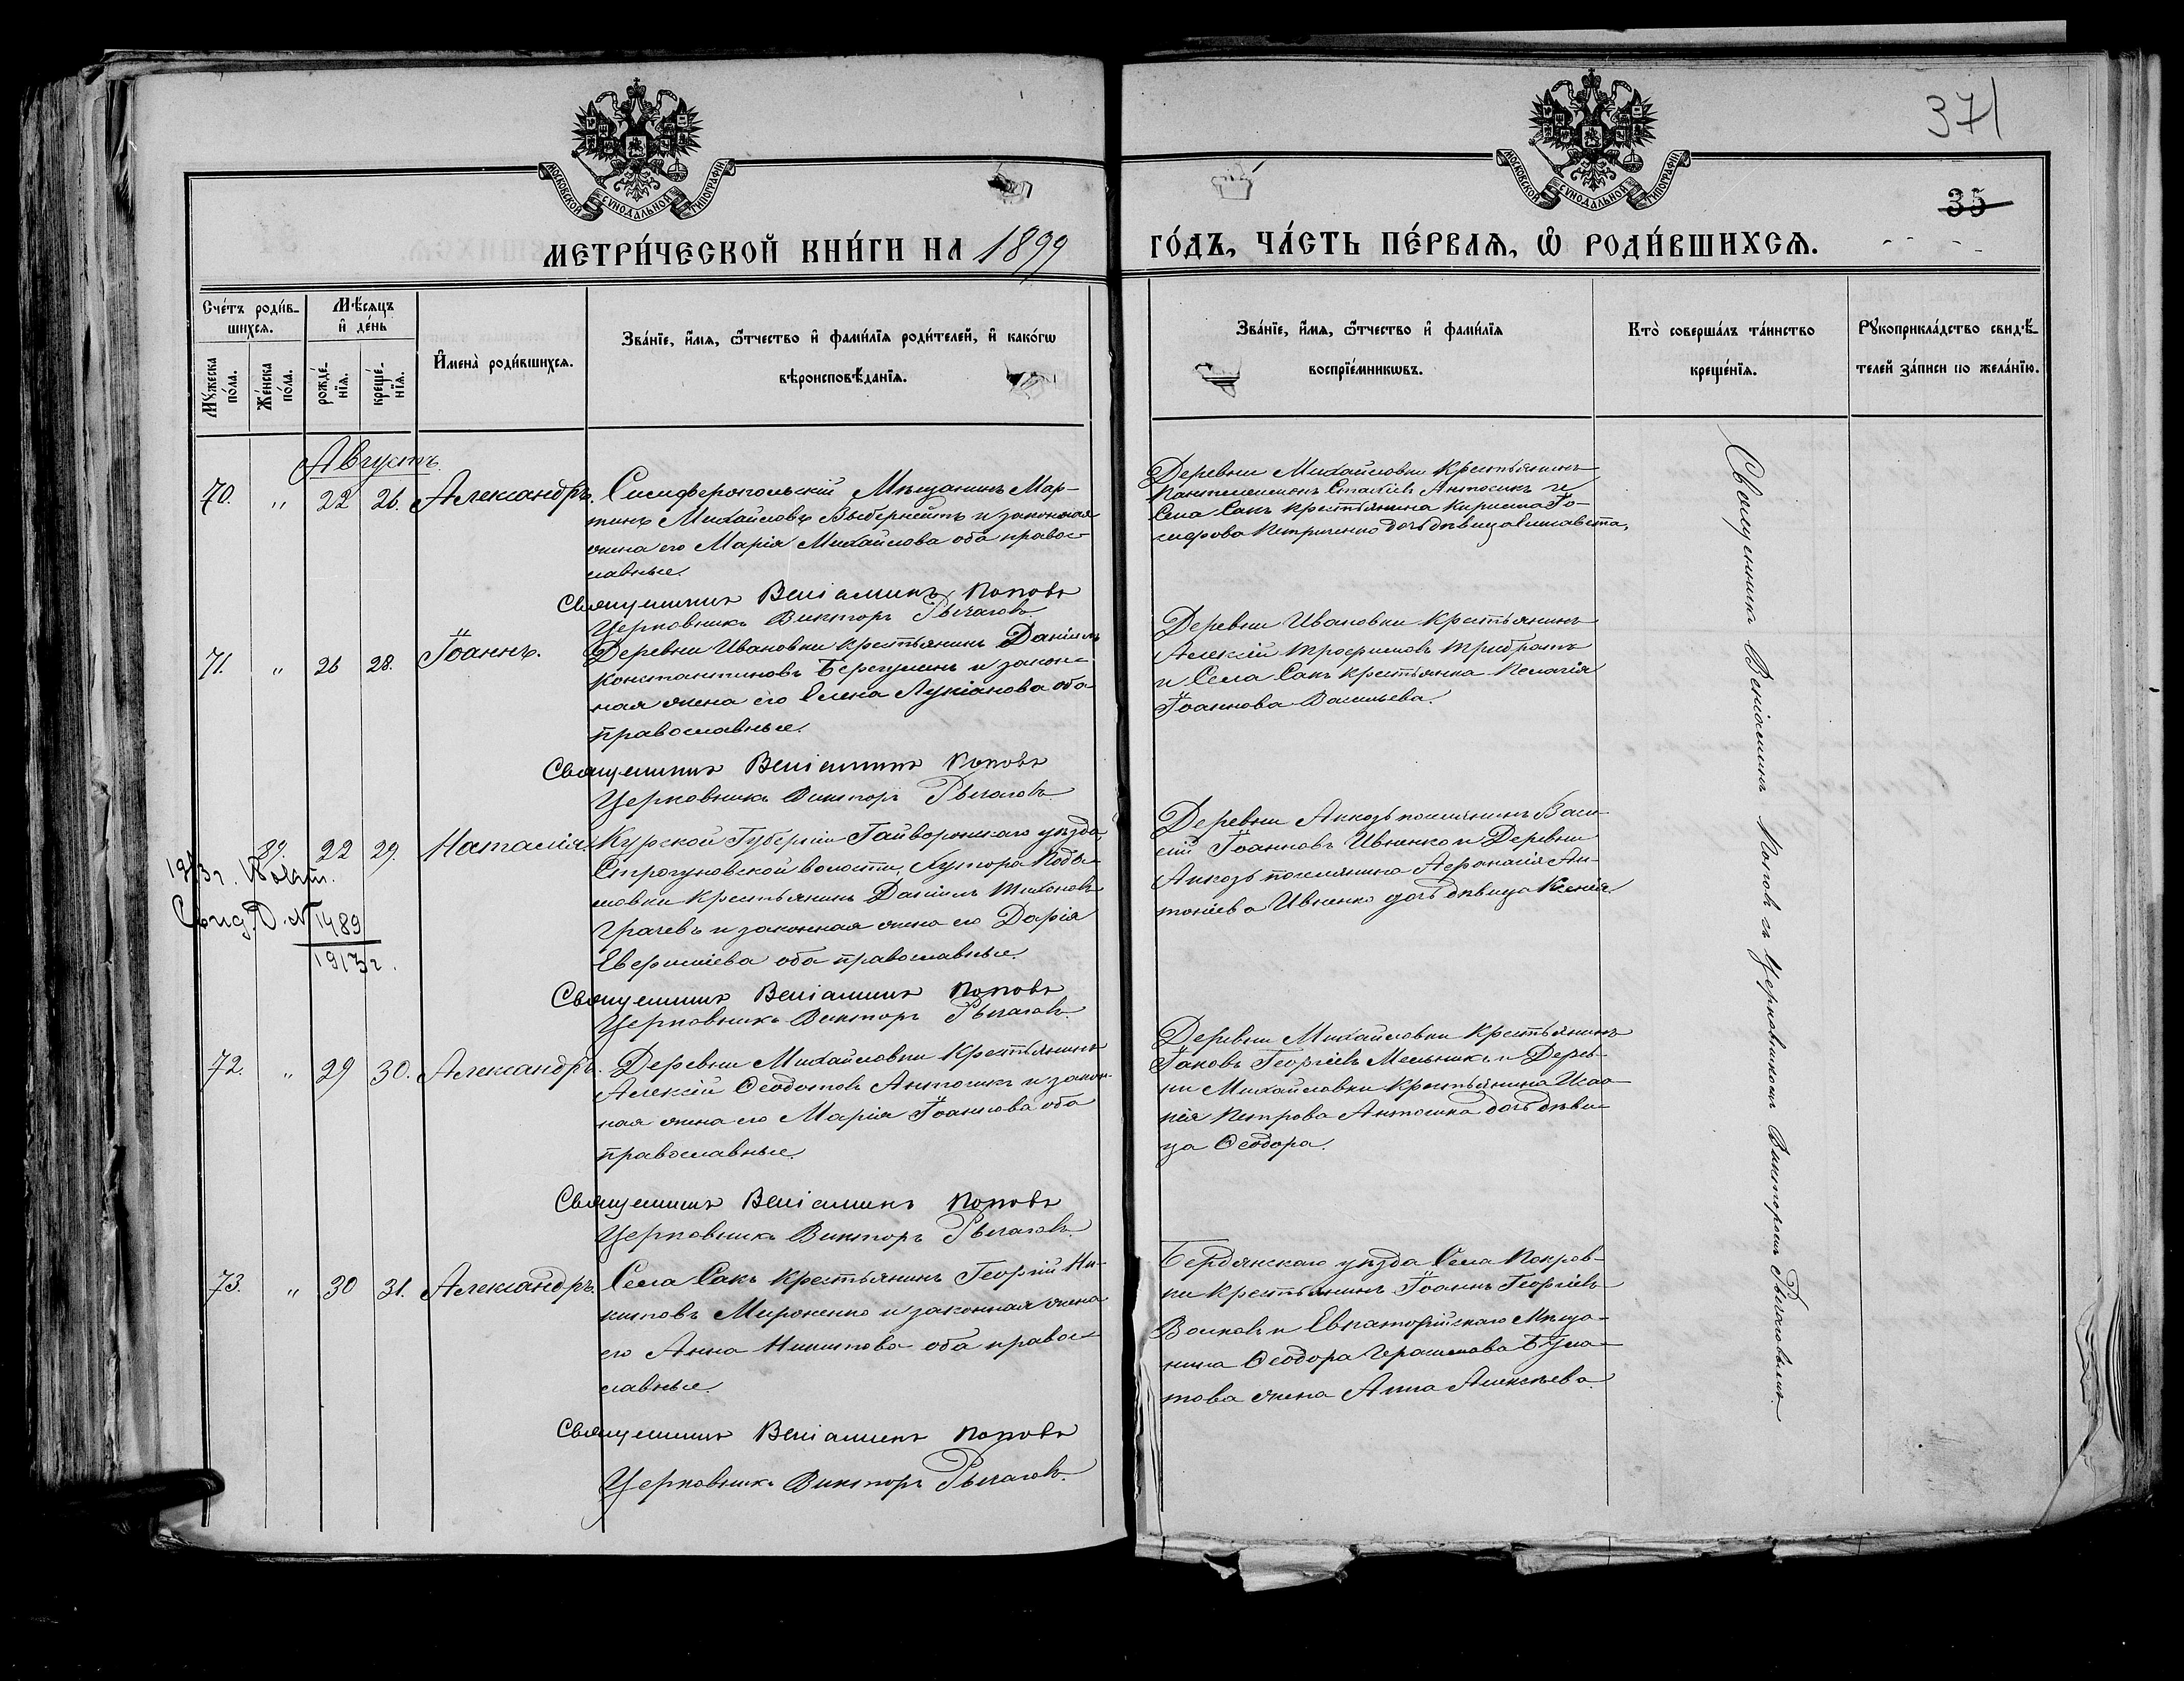 371
35
МОСКОВСКОЙ СѴНОДАЛЬНОЙ ТИПОГРАФІИ
МОСКОВСКОЙ СѴНОДАЛЬНОЙ ТИПОГРАФІИ
МЕТРИ́ЧЕСКОЙ КНИ́ГИ НА 1899
ГО́ДЪ, ЧА́СТЬ ПЕ́РВАѦ, Ѡ҆ РОДИ́ВШИХСѦ.
Сче́тъ роди́в-
шихсѧ.
Мꙋ́жеска по́ла.
Же́нска по́ла.
Мѣ́сѧцъ
и҆ де́нь
рожде́-нїѧ.
креще́-нїѧ.
И҆мена̀ роди́вшихсѧ.
Зва́нїе, и҆́мѧ, ѻ҆́тчество и҆ фами́лїѧ роди́телей, и҆ како́гѡ
вѣроисповѣ́данїѧ.
Зва́нїе, и҆́мѧ, ѻ҆́тчество и҆ фами́лїѧ
воспрїе́мникѡвъ.
Кто̀ соверша́лъ та́инство
креще́нїѧ.
Рꙋкоприкла́дство свидѣ́-
телей за́писи по жела́нїю.
Августъ.
70. " 22 26. Александръ.
Симферопольскій Мѣщанинъ Мар-
тинъ Михайловъ и законная
жена его Марія Михайлова оба правос-
лавные.
Священникъ Веніаминъ Поповъ
Церковникъ Викторъ Рыгаловъ
Деревни Михайловки крестьянинъ
Пантелеимонъ Антосикъ и
Села Сакъ крестьянина Кирилла Іо-
сифова Петриченко дочь дѣвица Елисавета.
71. " 26 28. Іоаннъ.
Деревни Ивановки крестьянинъ Даніилъ
Константиновъ и закон-
ная жена его Елена Лукіанова оба
православные.
Священникъ Веніаминъ Поповъ
Церковникъ Викторъ Рыгаловъ
Деревни Ивановки крестьянинъ
Алексій Трофимовъ Трибратъ
и Села Сакъ крестьянка Пелагія
Іоаннова Васильева.
29. 22 29. Наталія.
Курской Губерніи Гайворонскаго уѣзда
Строгуновской волости, Хутора
крестьянинъ Даніилъ Тихоновъ
Грачевъ и законная жена его Дарія
оба православные.
Священникъ Веніаминъ Поповъ
Церковникъ Викторъ Рыгаловъ
Деревни поселянинъ Васи-
лій Іоанновъ Ивненко и Деревни
поселянина Аѳанасія Ан-
тоніева Ивненко дочь дѣвица Ксенія.
1913 г.
Свид. № 1489
1913 г.
72. " 29 30. Александръ.
Деревни Михайловки Крестьянинъ
Алексій Ѳеодотовъ Антосикъ и закон-
ная жена его Марія Іоаннова оба
православные.
Священникъ Веніаминъ Поповъ
Церковникъ Викторъ Рыгаловъ
Деревни Михайловки крестьянинъ
Іаковъ Георгіевъ Мельникъ и Дерев-
ни Михайловки крестьянина Исаа-
кія Петрова Антосика дочь дѣви-
ца Ѳеодора.
73. " 30 31. Александръ.
Села Сакъ крестьянинъ Георгій Ни-
китовъ Мироненко и законная жена
его Анна Никитова оба правос-
лавные.
Священникъ Веніаминъ Поповъ
Церковникъ Викторъ Рыгаловъ
Бердянскаго уѣзда Села Покров-
ки крестьянинъ Іоаннъ Георгіевъ
Волковъ и Евпаторійскаго Мѣща-
нина Ѳеодора Герасимова
жена Анна Алексѣева.
Священникъ Веніаминъ Поповъ съ Церковникомъ Викторомъ Рыгаловымъ.